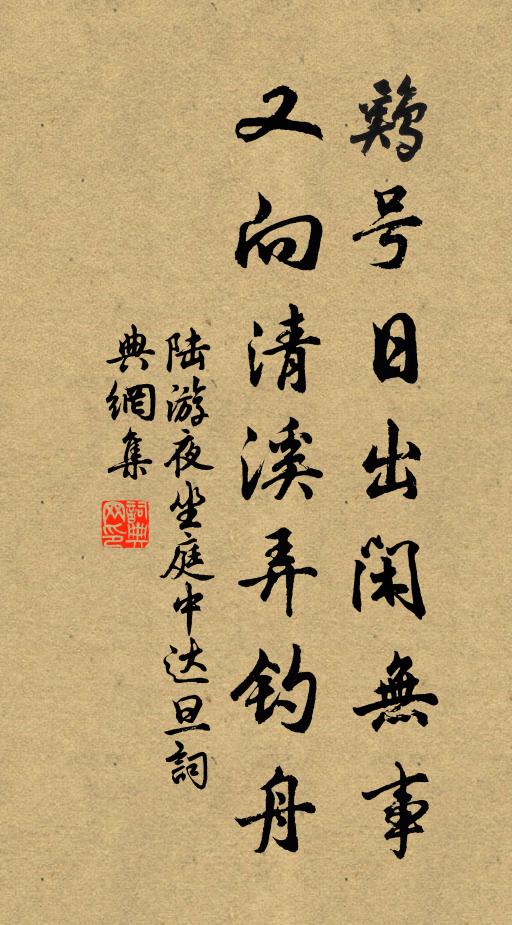 鷄号日出閑無事
又向清溪弄钓舟
陆游夜坐庭中达旦詞
典網集
詞典
网印